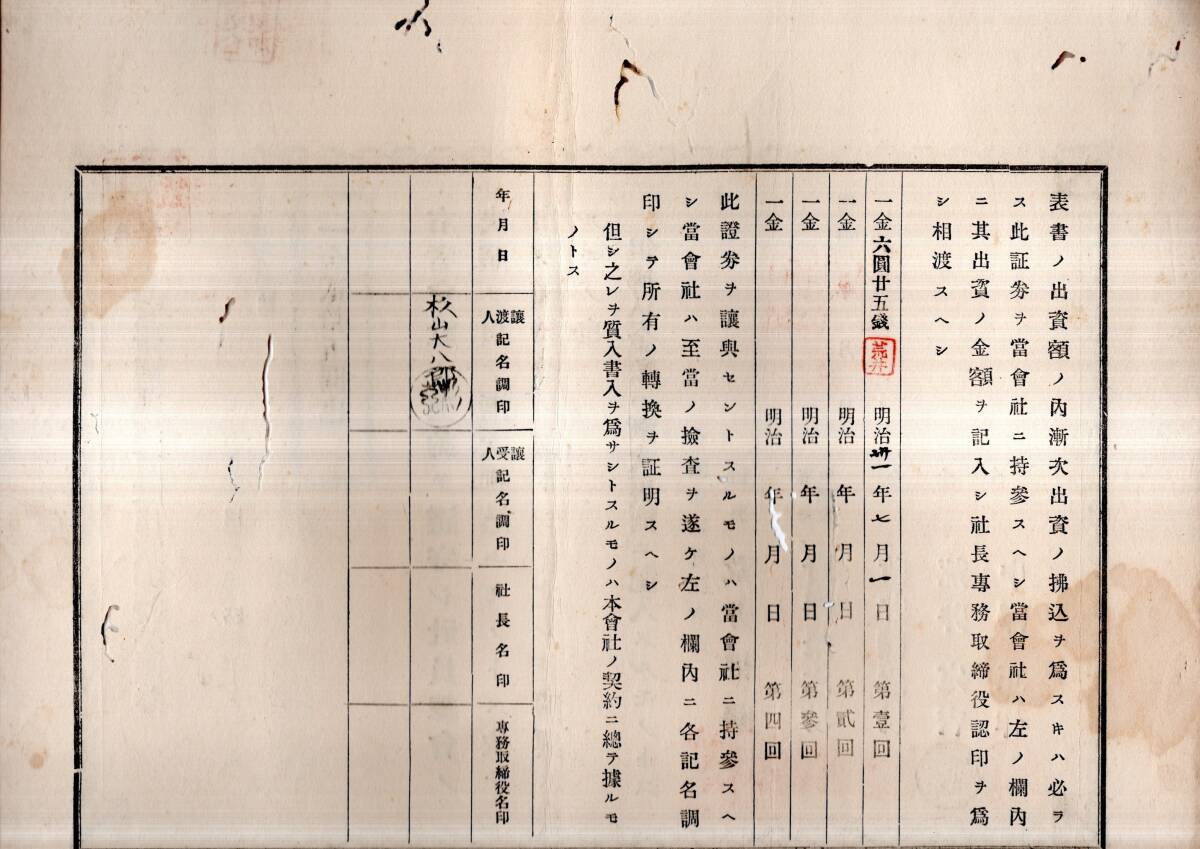 表書ノ出資額ノ內漸次出資ノ拂込ヲ爲スキハ必ラ
ス此証券ヲ當會社ニ持參スヘシ當會社ハ左ノ欄內
ニ其出資ノ金額ヲ記入シ社長專務取締役認印ヲ爲
シ相渡スヘシ
一金六圓廿五錢 明治卅一年七月一日 第壹回
一金 明治 年 月 日 第貳回
一金 明治 年 月 日 第參回
一金 明治 年 月 日 第四回
此證劵ヲ讓與セントスルモノハ當會社ニ持參スヘ
シ當會社ハ至當ノ撿査ヲ遂ケ左ノ欄內ニ各記名調
印シテ所有ノ轉換ヲ証明スヘシ
但シ之レヲ質入書入ヲ爲サントスルモノハ本會社ノ契約ニ總テ據ルモ
ノトス
年月日
讓渡人記名調印
讓受人記名調印
社長名印
專務取締役名印
杉山大八郎